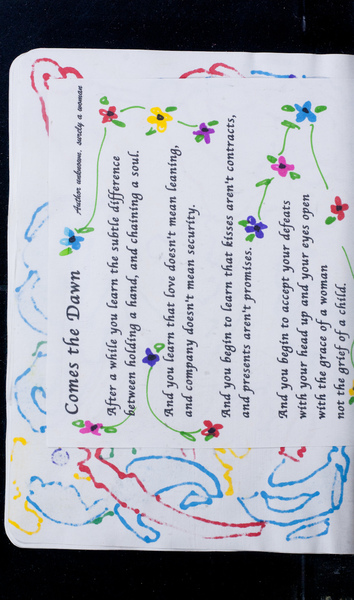 Comes the Dawn
Author unknown, surely a woman
After a while you learn the subtle difference
between holding a hand, and chaining a soul.
And you learn that love doesn't mean leaning,
and company doesn't mean security.
And you begin to learn that kisses aren't contracts,
and presents aren't promises.
And you begin to accept your defeats
with your head up and your eyes open
with the grace of a woman
not the grief of a child.